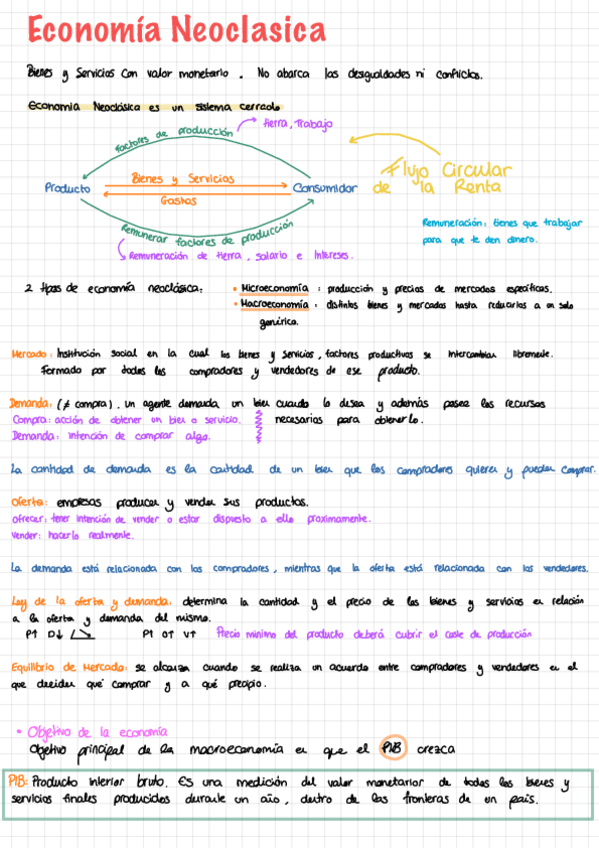 Economía Neoclasica
Bienes y Servicios con valor monetario. No abarca las desigualdades ni conflictos.
Economía Neoclásica es un sistema cerrado
Tierra, Trabajo
Factores de producción
Flujo Circular
de la Renta
Producto
Bienes y Servicios
Consumidor
Gastos
Remunerar factores de producción
Remuneración: tienes que trabajar
para que te den dinero.
Remuneración de tierra, salario e Intereses.
2 tipos de economía neoclásica:
• Microeconomía: producción y precios de mercados específicos.
• Macroeconomía: distintos bienes y mercados hasta reducirlos a un solo
genérico.
Mercado: Institución social en la cual los bienes y servicios, factores productivos se intercambian libremente.
Formado por todos los compradores y vendedores de ese producto.
Demanda: (≠ compra). un agente demanda un bien cuando lo desea y además posee los recursos
Compra: acción de obtener un bien o servicio.
necesarios para obtenerlo.
Demanda: intención de comprar algo.
La cantidad de demanda es la cantidad de un bien que los compradores quieren y pueden comprar.
Oferta: empresas producen y venden sus productos.
Ofrecer: tener intención de vender o estar dispuesto a ello proximamente.
Vender: hacerlo realmente.
La demanda está relacionada con los compradores, mientras que la oferta está relacionada con los vendedores.
Ley de la oferta y demanda: determina la cantidad y el precio de los bienes y servicios en relación
a la oferta y demanda del mismo.
P↑ D↓
P↑ O↑ V↑
Precio mínimo del producto deberá cubrir el coste de producción
Equilibrio de Mercado: se alcanza cuando se realiza un acuerdo entre compradores y vendedores en el
que deciden qué comprar y a qué precio.
• Objetivo de la economía
Objetivo principal de la macroeconomía en que el PIB crezca
PIB: Producto interior bruto. Es una medición del valor monetarior de todos los bienes y
servicios finales producidos durante un año, dentro de las fronteras de un país.